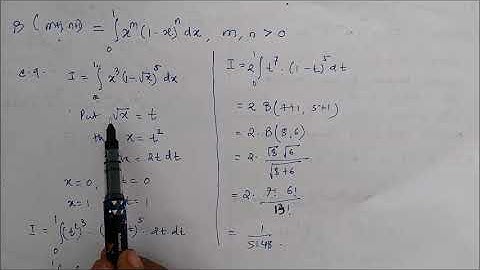 B (m+1, n+1) = ∫₀¹ xᵐ (1-x)ⁿ dx, m, n > 0
e.g. I = ∫ x³ (1-√x)⁵ dx
Put √x = t
x = t²
= 2t dt
x = 0, t = 0
x = 1,
I = ∫ (t²)³ 5 . 2t dt
I = 2∫₀¹ t⁷ . (1-t)⁵ dt
= 2 B(7+1, 5+1)
= 2 . B(8, 6)
= 2 . √8 √6 / √8+6
= 2 . 7! 6! / 13!
= 1 / 5148 .